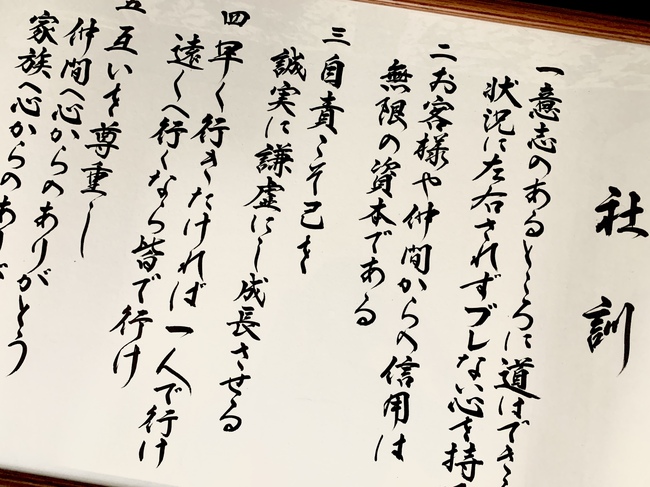 社訓
一意志のあるところに道はできる
状況に左右されずブレない心を持
二お客様や仲間からの信用は
無限の資本である
三自責こそ己を
誠実に謙虚にし成長させる
四早く行きたければ一人で行け
遠くへ行くなら皆で行け
五互いを尊重し
仲間へ心からのありがとう
家族へ心からのありが